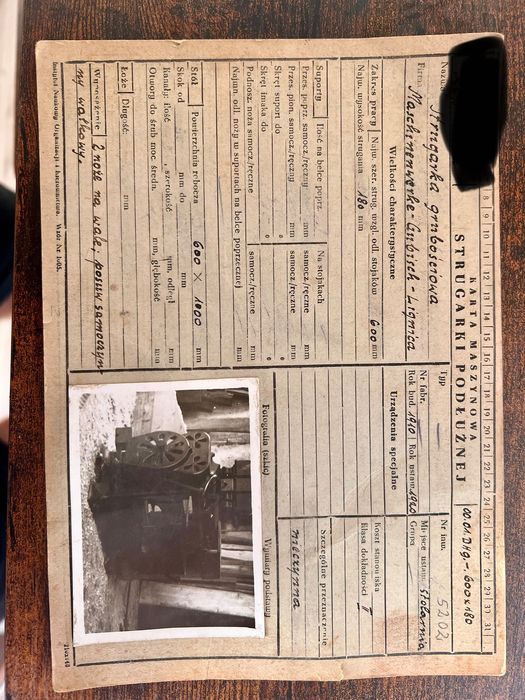 8 9 10 11 12 13 14 15 16 17 18 19 20 21 22 23 24 25 26 27 28 29 30 31
KARTA MASZYNOWA
STRUGARKI PODŁUŻNEJ
00.01.DHg.-.600x180
Strugarka grubościowa
Typ —
Nr inw. 5202
Firma Maschinenwerke-Gubisch-Lignica
Nr fabr. —
Rok bud. 1910 Rok ustaw. 1920
Miejsce ustaw. stolarnia
Grupa
Wielkości charakterystyczne
Urządzenia specjalne
Zakres pracy Najw. szer. strug. wzgl. odl. stojaków 600 mm
Najw. wysokość strugania 180 mm
Koszt stanowiska
Klasa dokładności II
Suporty Ilość na belce poprz. Na stojakach
Przes. poprz. samocz./ręczny mm samocz./ręczny mm
Przes. pion. samocz./ręczny mm samocz./ręczny mm
Skręt suport do ° °
Skręt imaka do ° °
Podnosz. noża samocz./ręczne samocz./ręczne
Najmn. odl. noży w suportach na belce poprzecznej mm
Szczególne przeznaczenie
nieczynna
Stół Powierzchnia robocza 600 x 1000 mm
Skok od mm do mm
Kanały: ilość , szerokość mm, odległ. mm
Otwory do śrub moc. średn. mm, głębokość mm
Łoże Długość: mm
Wyposażenie 2 noże na wale, posuw samoczyn
ny wałkowy.
Fotografia (szkic)
Wymiary podstawy
Instytut Naukowy Organizacji i Kierownictwa. Wzór Nr 1605.